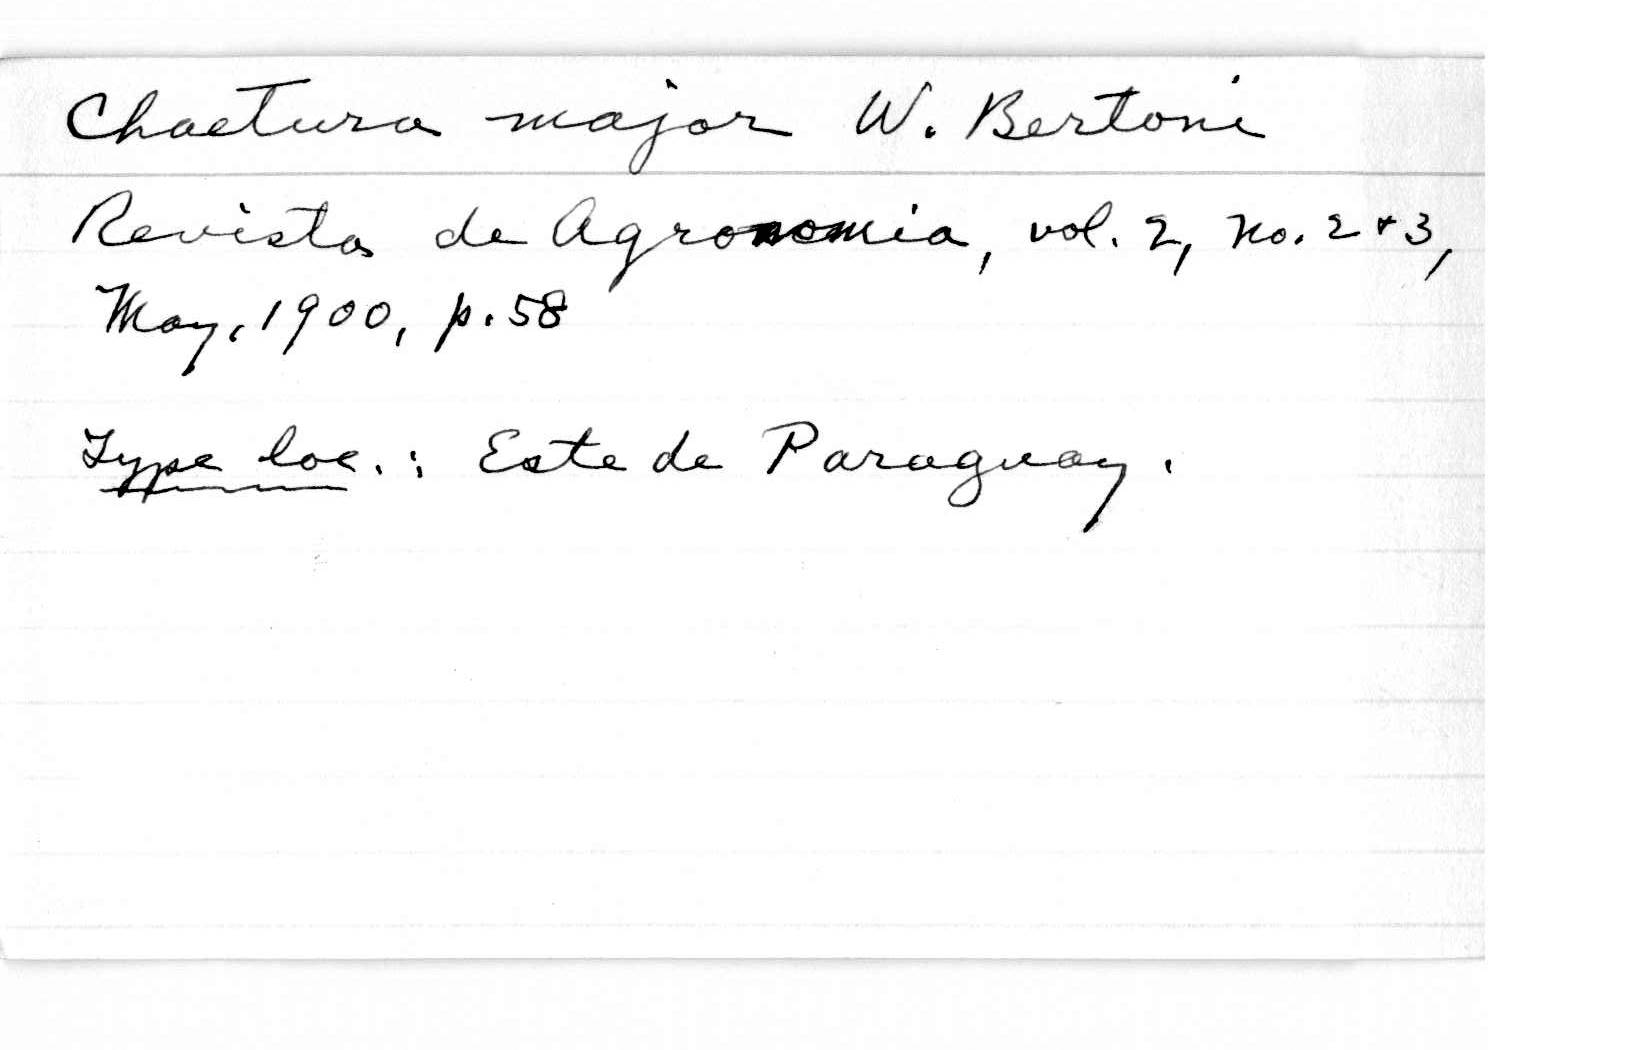 Chaetura major W. Bertoni
Revista de Agronomia, vol. 2, no. 2 + 3,
May, 1900, p. 58
Type loc.: Este de Paraguay.